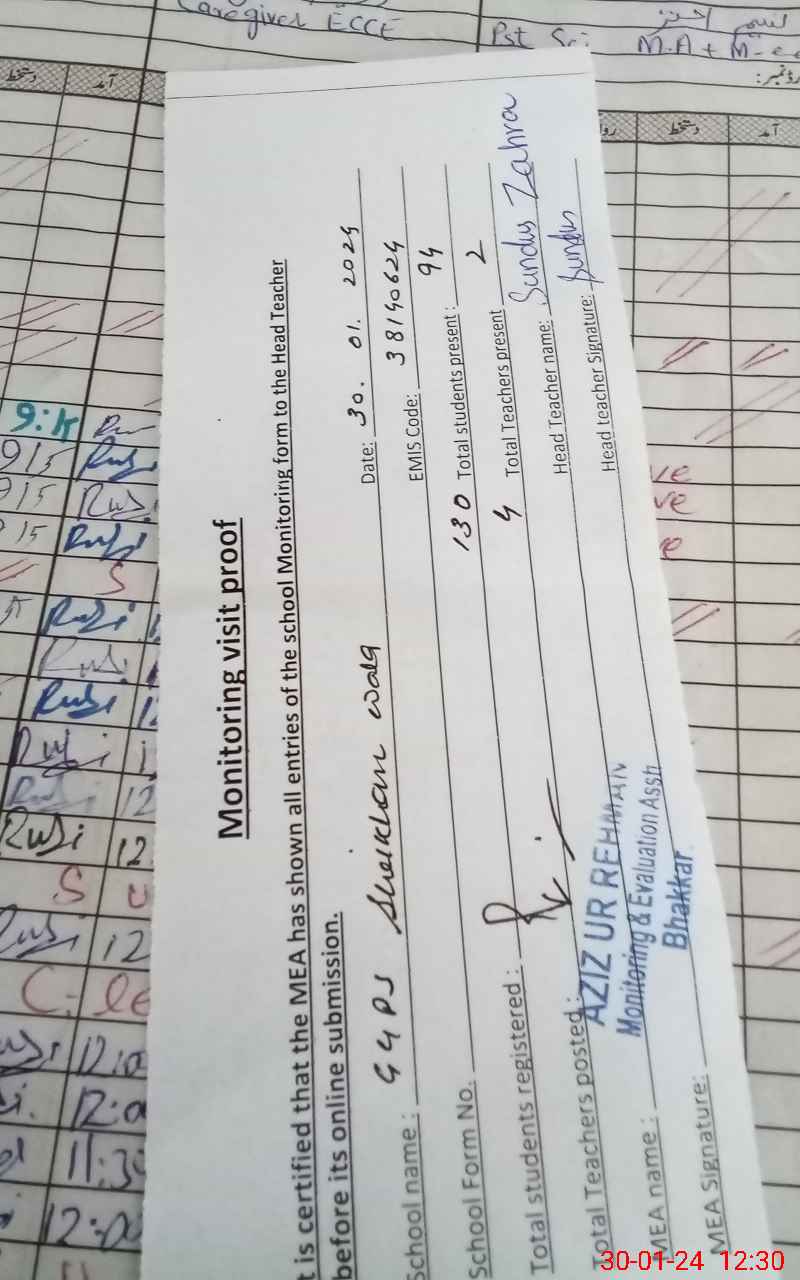 Caregiver ECCE
Pst Sci
M.A + M-ed
رڈ نمبر:
دستخط آمد
دستخط آمد
Monitoring visit proof
t is certified that the MEA has shown all entries of the school Monitoring form to the Head Teacher
before its online submission.
School name : GGPS Sheikhan wala Date: 30. 01. 2024
School Form No. EMIS Code: 38140624
Total students registered : 130 Total students present : 94
Total Teachers posted : 4 Total Teachers present 2
MEA name : Head Teacher name: Sundus Zahra
MEA Signature: Head teacher Signature: Sundus
AZIZ UR REHMAN
Monitoring & Evaluation Asstt
Bhakkar
9:15
915 Rubi
915 Rubi
15 Rubi
S
Rubi
Rubi
Rubi
Rubi
Rubi 12
Rubi 12
S u
Rubi 12
C-le
12:0
12:0
11:30
12:00
30-01-24 12:30